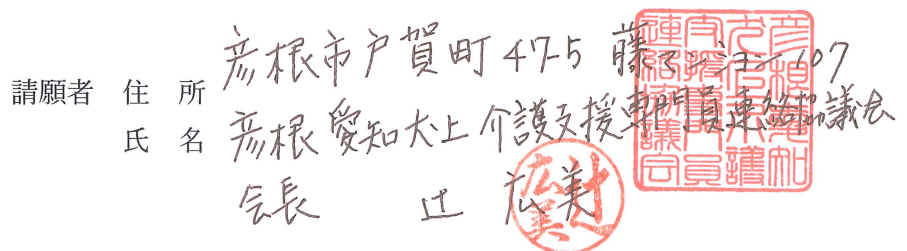 彦根市戸賀町47-5 藤マンション107
請願者 住所
氏名 彦根愛知犬上介護支援専門員連絡協議会
会長 辻 広美
彦根愛知犬上介護支援専門員連絡協議会
辻広美